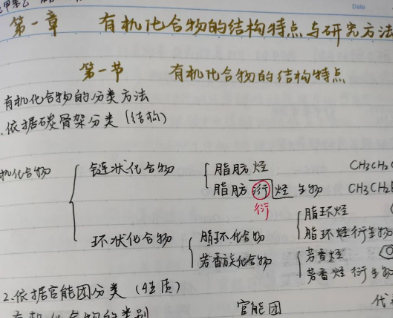 Date
第一章 有机化合物的结构特点与研究方法
第一节 有机化合物的结构特点
有机化合物的分类方法
依据碳骨架分类 (结构)
机化合物
链状化合物
脂肪烃 CH3CH2C
脂肪衍烃生物 CH3CH2
衍
环状化合物
脂环化合物
脂环烃
脂环烃衍生物
芳香族化合物
芳香烃
芳香烃衍生物
2.依据官能团分类 (性质)
有机化合物的类别 官能团 代